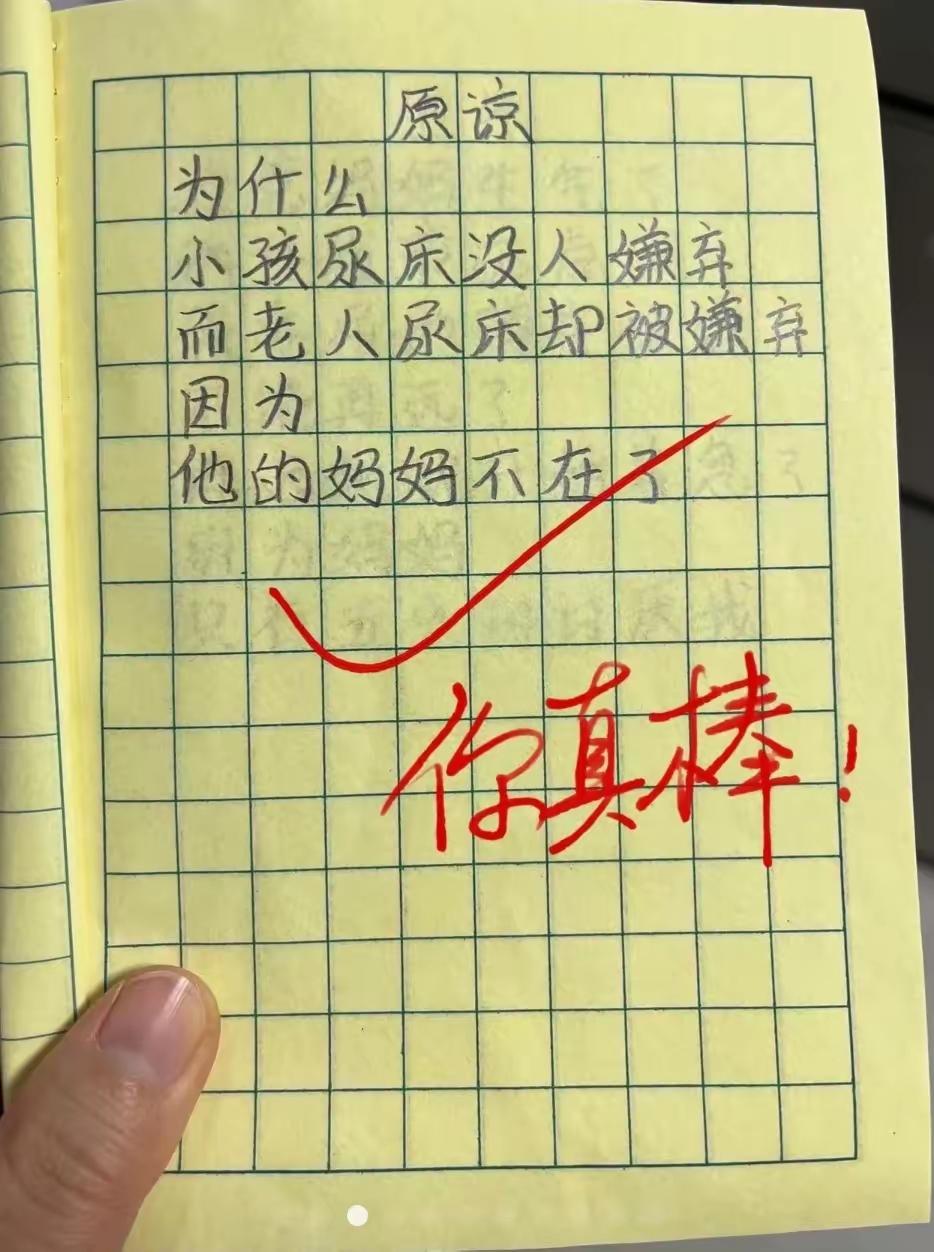 原谅
为什么
小孩尿床没人嫌弃
而老人尿床却被嫌弃
因为
他的妈妈不在了
你真棒！